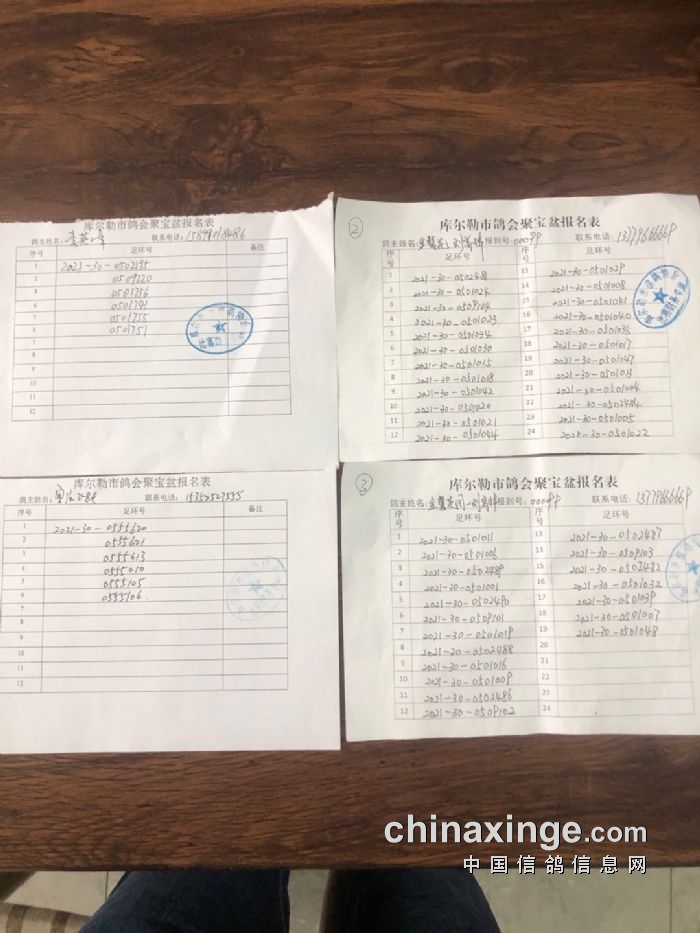 库尔勒市鸽会聚宝盆报名表
鸽主姓名: 联系电话:
序号 足环号 备注
1 2021-30-0502195
2 0509120
3 0501756
4 0501741
5 0501755
6 0501751
7
8
9
10
11
12
②
库尔勒市鸽会聚宝盆报名表
鸽主姓名: 报到号: 联系电话:
序号 足环号 序号 足环号
1 2021-30-0502481 13 2021-30-0501029
2 2021-30-0501024 14 2021-30-0501008
3 2021-30-0509104 15 2021-30-0501041
4 2021-30-0501023 16 2021-30-0501040
5 2021-30-0501034 17 2021-30-0501035
6 2021-30-0501030 18 2021-30-0501017
7 2021-30-0501015 19 2021-30-0501047
8 2021-30-0501018 20 2021-30-0501013
9 2021-30-0501042 21 2021-30-0501004
10 2021-30-0501020 22 2021-30-0502484
11 2021-30-0501021 23 2021-30-0501005
12 2021-30-0501044 24 2021-30-0501022
库尔勒市鸽会聚宝盆报名表
鸽主姓名: 联系电话: 15352527555
序号 足环号 备注
1 2021-30-0555620
2 0555621
3 0555613
4 0555010
5 0555105
6 0555106
7
8
9
10
11
12
③
库尔勒市鸽会聚宝盆报名表
鸽主姓名: 报到号: 联系电话:
序号 足环号 序号 足环号
1 2021-30-0501011 13 2021-30-0502487
2 2021-30-0501006 14 2021-30-0509103
3 2021-30-0502489 15 2021-30-0502482
4 2021-30-0501001 16 2021-30-0501032
5 2021-30-0502490 17 2021-30-0501039
6 2021-30-0509101 18 2021-30-0501007
7 2021-30-0501019 19 2021-30-0501048
8 2021-30-0502488 20
9 2021-30-0501016 21
10 2021-30-0501009 22
11 2021-30-0502486 23
12 2021-30-0509102 24
chinaxinge.com
中国信鸽信息网